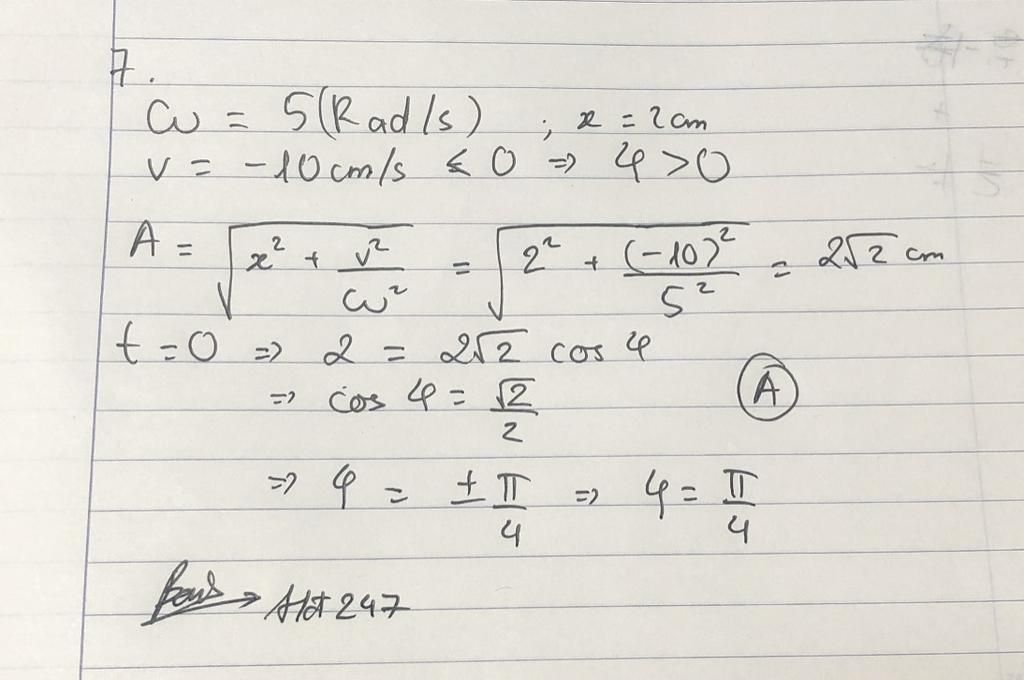 7.
ω = 5(Rad/s) ; x = 2cm
v = -10cm/s < 0 => φ > 0
A = √(x² + v²/ω²) = √(2² + (-10)²/5²) = 2√2 cm
t = 0 => 2 = 2√2 cos φ
=> cos φ = √2/2
A
=> φ = ± π/4 => φ = π/4
247